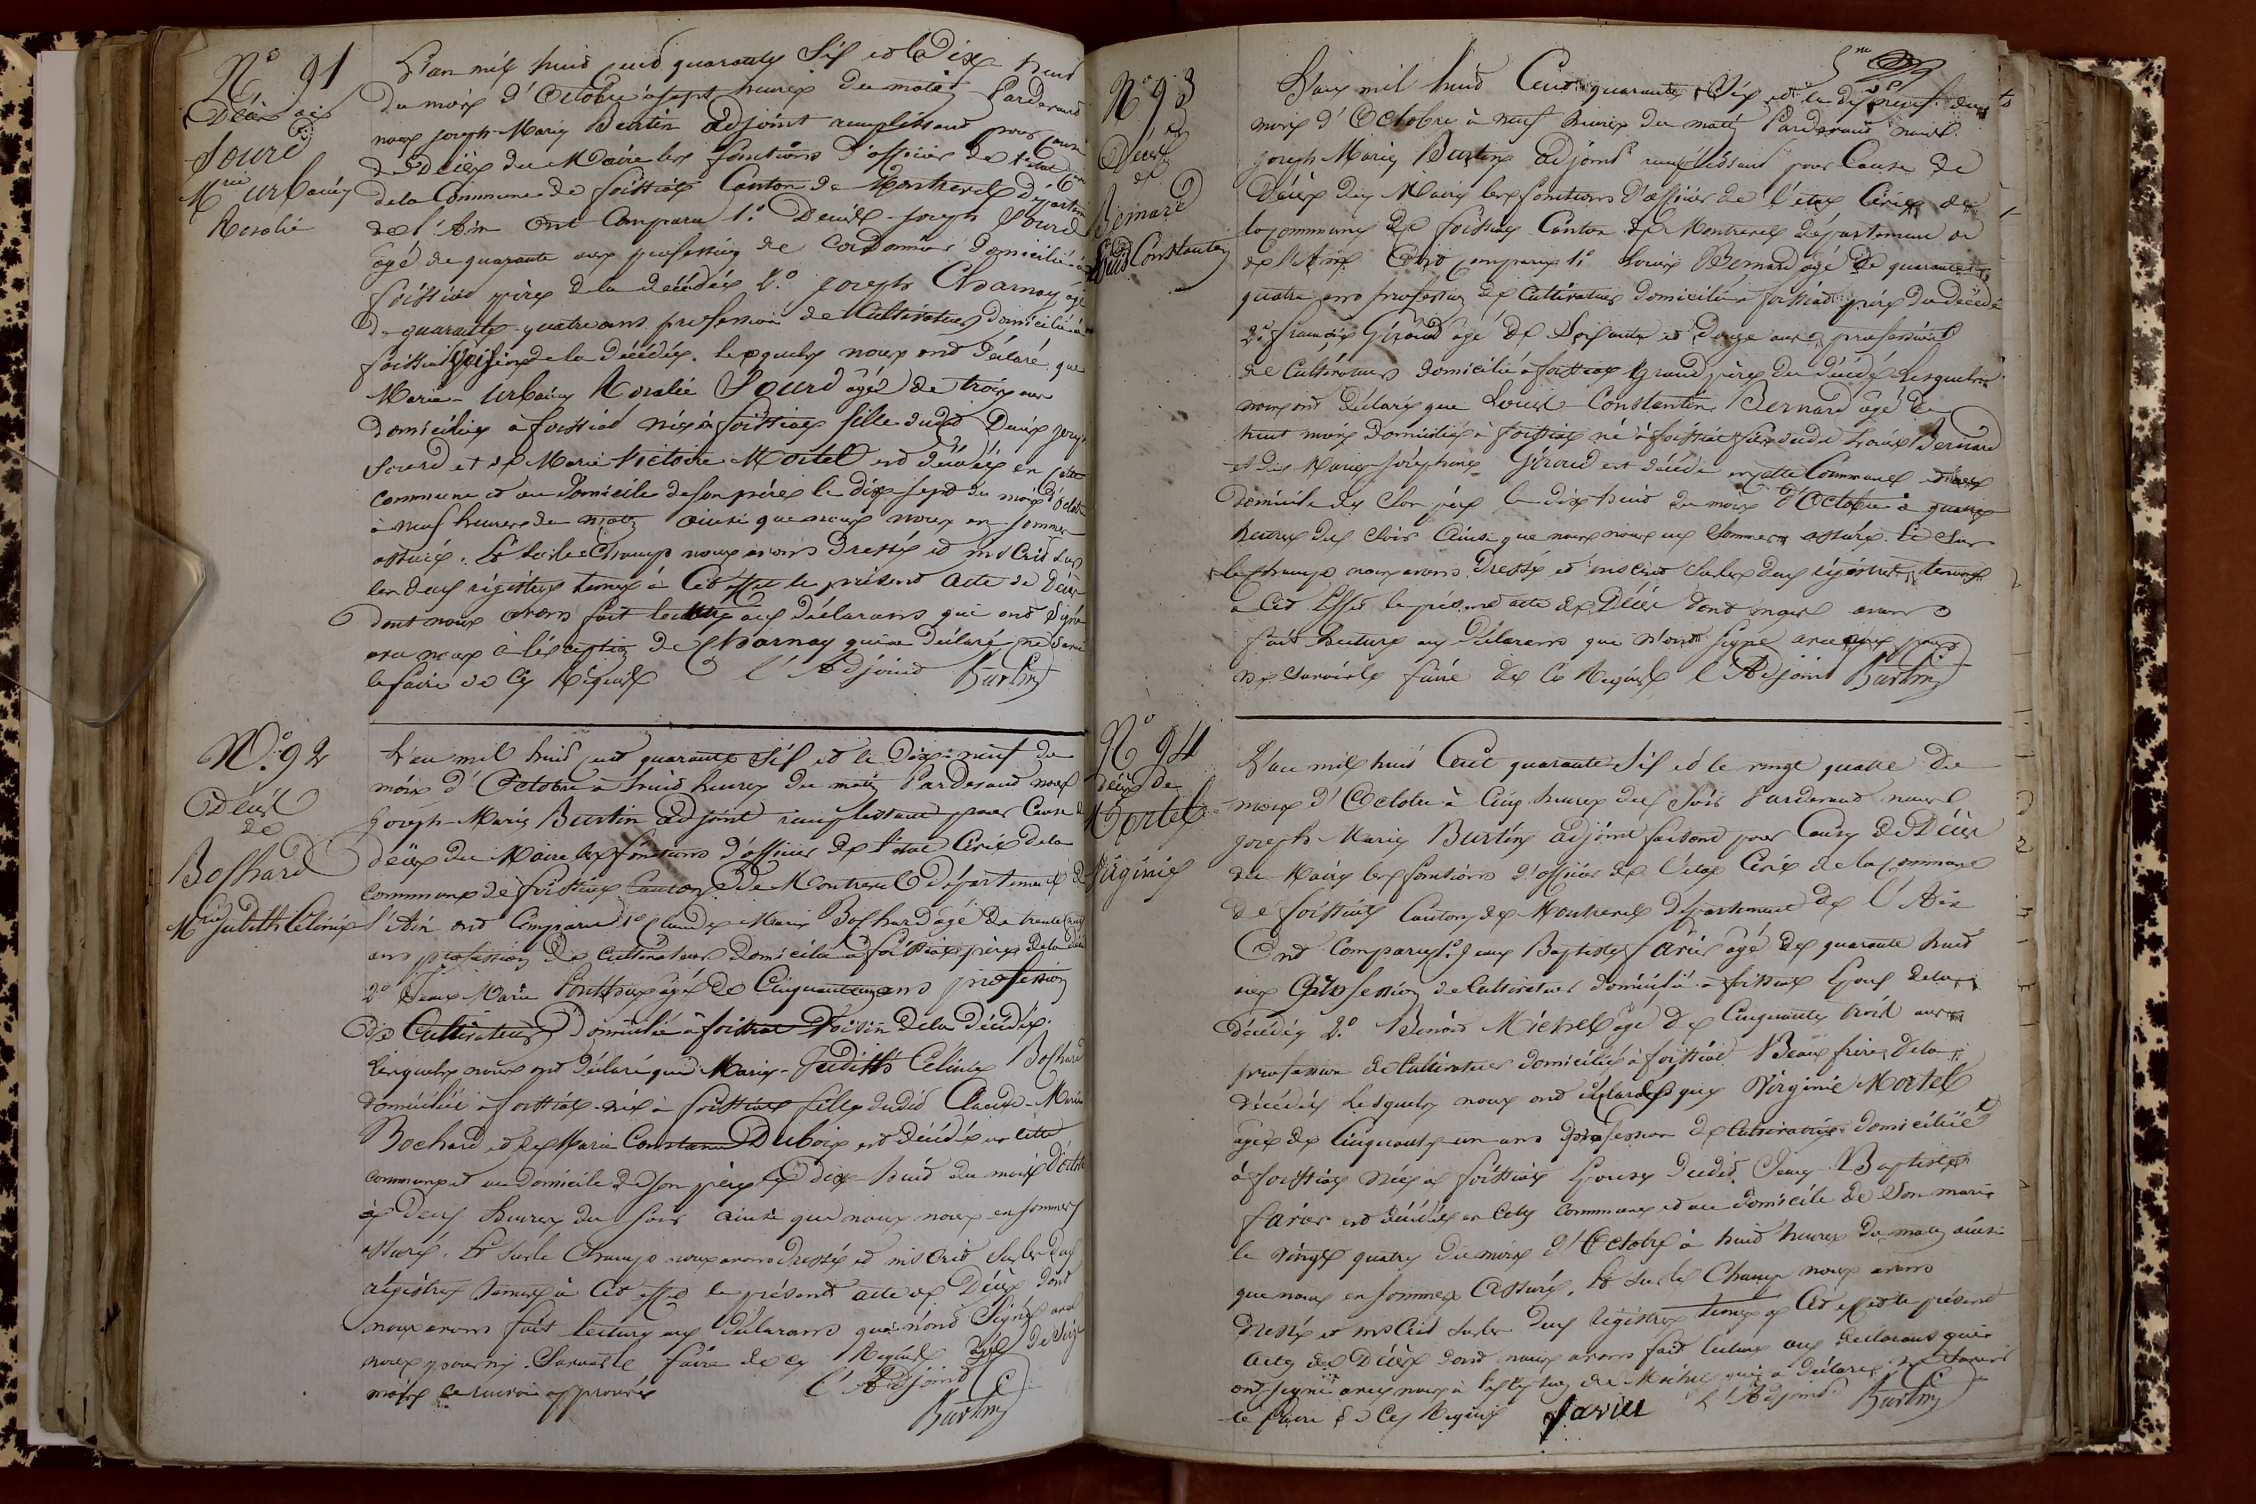 N° 91
Décès de
Sourd
Mrie urbaine
Rosalie
L'an mil huit cent quarante Sis et le Dix huit
du mois d'Octobre à sept heures du matin Pardevant
nous joseph Marie Burtin adjoint remplissant pour Cause
de Décès du Maire les fonctions d'officier de l'état Civil
de la Commune de foissiat Canton de Montrevel Département
de l'Ain ont Comparu 1° Denis joseph Sourd
âgé de quarante ans profession de Cordonnier Domicilié à
foissiat père de la décédée 2° joseph Charnay âgé
de quarante quatre ans profession de Cultivateur domicilié à
foissiat voisin de la Décédée. lesquels nous ont Déclaré que
Marie urbaine Rosalie Sourd âgée de trois ans
domiciliée à foissiat née à foissiat fille dudit Denis joseph
Sourd et de Marie Victoire Mortel est décédée en cette
commune et au domicile de son père le dix sept du mois d'Octobre
à neuf heures du matin ainsi que nous nous en sommes
assuré. Et sur le Champ nous avons Dressé et inscrit sur
les deux régistres tenus à Cet effet le présent acte de Décès
dont nous avons fait lecture aux Déclarans qui ont Signé
avec nous à l'éxception de Charnay qui a déclaré ne savoir
le faire de Ce Requis l'Adjoint Burtin
N° 92
Décès
de
Bochard
Mrie Judith Célinie
L'an mil huit cent quarante Sis et le Dix neuf du
mois d'Octobre à huit heures du matin Pardevant nous
joseph Marie Burtin adjoint remplissant pour Cause de
décès du Maire les fonctions d'officier de l'état Civil de la
commune de foissiat Canton de Montrevel département de
l'Ain ont Comparu 1° Claude Marie Bochard âgé de trente
ans profession de cultivateur domicilié à foissiat père de la
2° Jean Marie âgé de Cinquante ans profession
de Cultivateur domicilié à foissiat Voisin de la Décédée.
Lesquels nous ont déclaré que Marie Judith Célinie Bochard
domiciliée à foissiat née à foissiat fille dudit Claude Marie
Bochard et de Marie Constance Dubois est décédée en cette
commune et au domicile de son père le dix huit du mois d'Octobre
à deux heures du soir ainsi que nous nous en sommes
assuré. Et sur le Champ nous avons Dressé et inscrit sur les deux
régistres tenus à Cet effet le présent acte de Décès dont
nous avons fait lecture aux déclarans qui n'ont Signé avec
nous pour ne Savoir le faire de ce Requis
approuvé l'Adjoint
Burtin
N° 93
Décès
de
Bernard
Louis Constantin
L'an mil huit Cent quarante Sis et le dix neuf du
mois d'Octobre à neuf heures du matin Pardevant nous
joseph Marie Burtin adjoint remplissant pour Cause de
Décès du Maire les fonctions d'officier de l'état Civil de
la commune de foissiat Canton de Montrevel département
de l'Ain Ont comparu 1° Louis Bernard âgé de quarante
quatre ans profession de Cultivateur domicilié à foissiat père du décédé
2° françois Giroud âgé de Soixante et Douze ans profession
de Cultivateur domicilié à foissiat grand père du décédé Lesquels
nous ont déclaré que Louis Constantin Bernard âgé de
huit mois domicilié à foissiat né à foissiat fils dudit Louis Bernard
et de Marie Joséphine Giroud est décédé en cette Commune et au
domicile de Son père le dix huit du mois d'Octobre à quatre
heures du Soir Ainsi que nous nous en Sommes assuré. Et Sur
le champ nous avons Dressé et inscrit Sur les deux régistres tenus
à Cet Effet le présent acte de Décès dont nous avons
fait lecture aux Déclarans qui n'ont Signé avec nous pour
ne Savoir le faire de Ce Requis l'Adjoint Burtin
N° 94
Décès de
Mortel
Virginie
L'an mil huit Cent quarante Sis et le vingt quatre du
mois d'Octobre à Cinq heures du Soir Pardevant nous
joseph Marie Burtin adjoint faisant pour Cause de Décès
du Maire les fonctions d'officier de l'état Civil de la commune
de foissiat Canton de Montrevel département de l'Ain
Ont Comparu 1° Jean Baptiste favier âgé de quarante huit
ans profession de Cultivateur domicilié à foissiat Epoux de la
décédée 2° Benoit Michel âgé de Cinquante trois ans
profession de Cultivateur domicilié à foissiat Beau frère de la
décédée Lesquels nous ont déclaré que Virginie Mortel
âgée de Cinquante un ans profession de Cultivatrice domiciliée
à foissiat née à foissiat Epouse dudit Jean Baptiste
favier est décédée en Cette commune et au domicile de Son mari
le Vingt quatre du mois d'Octobre à huit heures du matin ainsi
que nous en sommes Assuré. Et Sur le Champ nous avons
dressé et inscrit Sur les deux Régistres tenus à Cet effet le présent
acte de Décès dont nous avons fait lecture aux déclarans qui
ont Signé avec nous à l'exception de Michel qui a déclaré ne Savoir
le faire de Ce Requis favier l'Adjoint Burtin